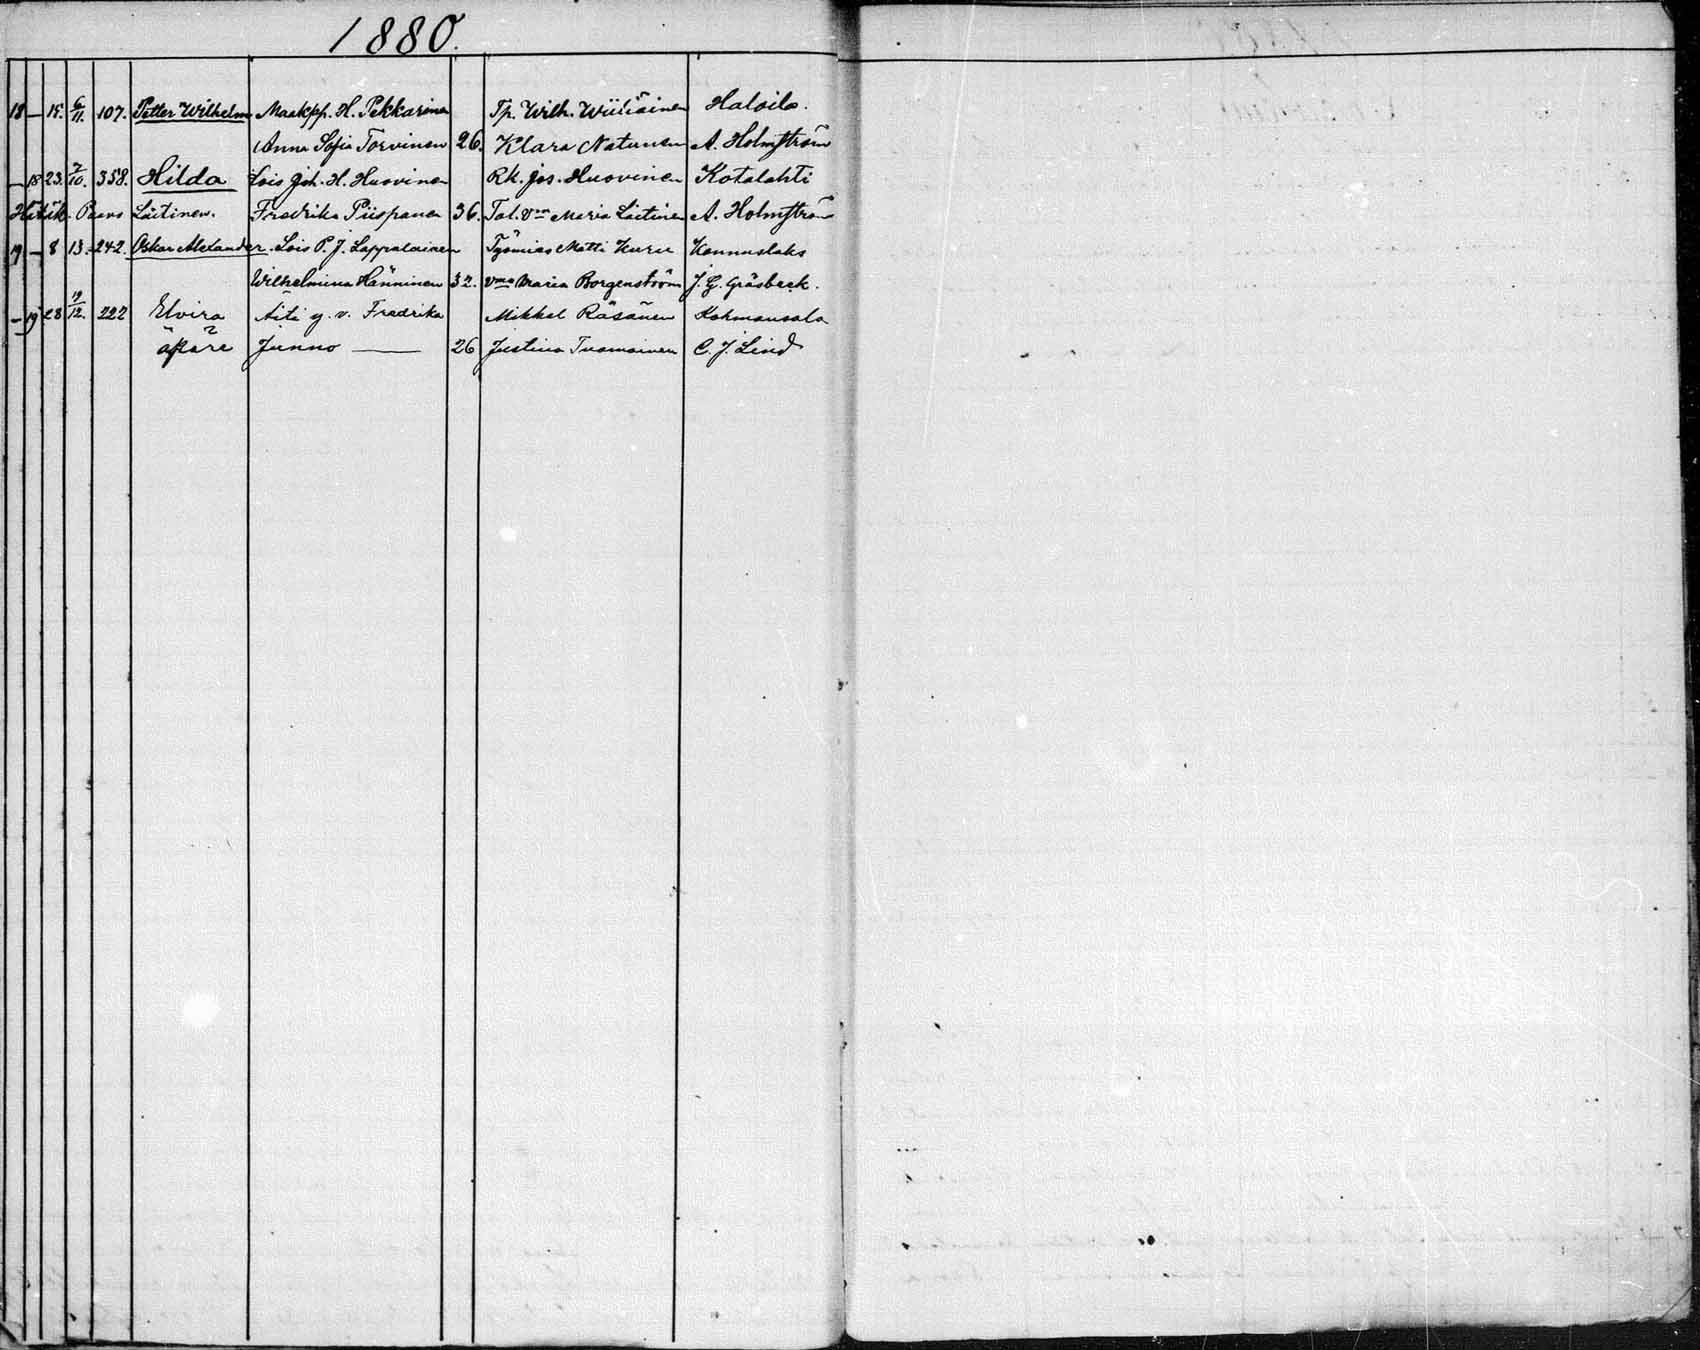 1880.
18 — 15. 6/11. 107. Petter Wilhelm Maakpp. H. Pekkarinen Tp. Wilh. Wiiliäinen Haloila.
Anna Sofia Torvinen 26. Klara Natunen A. Holmström
— 18 23. 7/10. 358. Hilda Lois Joh. H. Huovinen Rk. Jos. Huovinen Kotalahti
Hätäk. Paavo Laitinen. Fredrika Piispanen 36. Tal. Vmo Maria Laitinen A. Holmström
19 — 8 13. 242. Oskar Alexander. Lois P. J. Lappalainen Työmies Matti Kuru Konnuslaks
Wilhelmina Hänninen 32. Vmo Maria Borgenström J. G. Gräsbeck.
— 19 28 19/12. 222 Elvira Äiti y. v. Fredrika Mikkel Räsänen Kohmansalo
äpäre Junno — 26 Justina Tuomainen C. J. Lind